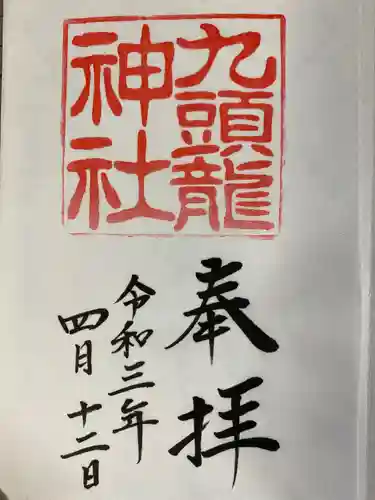 九頭龍
神社
奉拝
令和三年
四月十二日